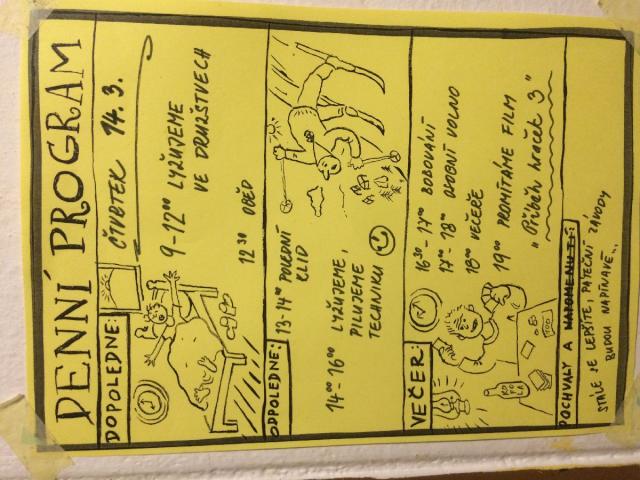 DENNÍ PROGRAM
DOPOLEDNE:
ČTVRTEK 14.3.
9-12⁰⁰ LYŽUJEME
VE DRUŽSTVECH
12³⁰ OBĚD
ODPOLEDNE:
13-14⁰⁰ POLEDNÍ
KLID
14-16⁰⁰ LYŽUJEME,
PILUJEME
TECHNIKU
VEČER:
16³⁰-17⁰⁰ BOBOVÁNÍ
17⁰⁰-18⁰⁰ OSOBNÍ VOLNO
18⁰⁰ VEČEŘE
19⁰⁰ PROMÍTÁME FILM
„Příběh hraček 3"
KOFOLA
POCHVALY A NAPOMENUTÍ:
STÁLE SE LEPŠÍTE, PÁTEČNÍ ZÁVODY
BUDOU NAPÍNAVÉ...